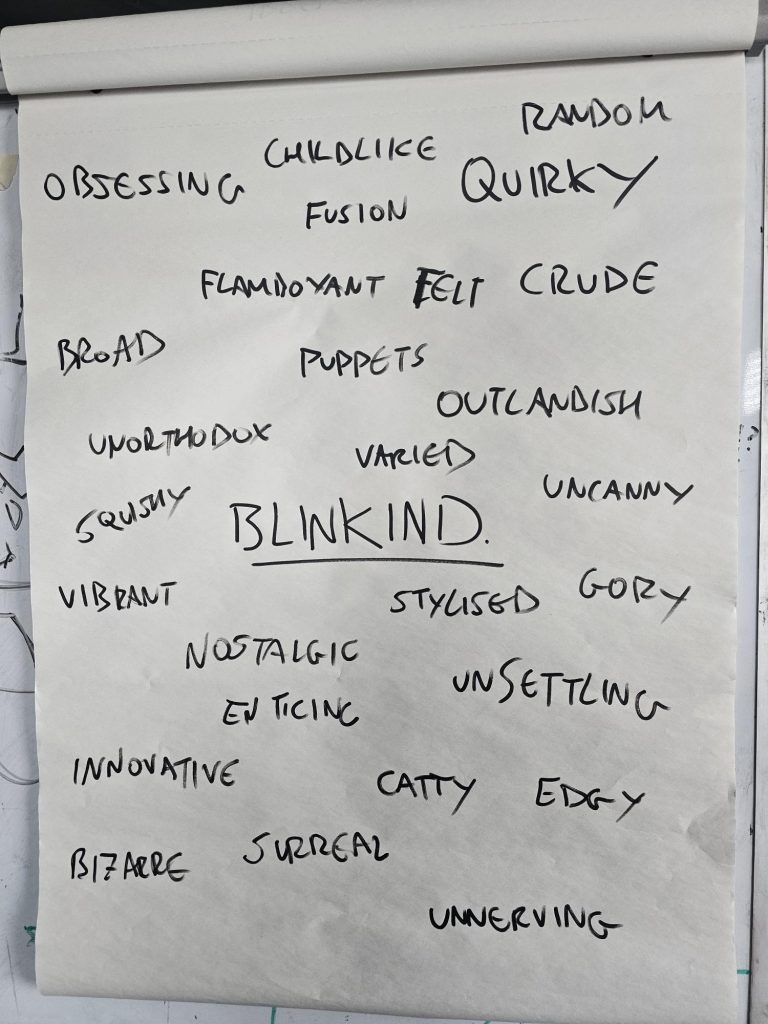 RANDOM
CHILDLIKE
OBSESSING
QUIRKY
FUSION
FLAMBOYANT FELT CRUDE
BROAD
PUPPETS
OUTLANDISH
UNORTHODOX
VARIED
UNCANNY
SQUISHY
BLINKIND.
VIBRANT
STYLISED
GORY
NOSTALGIC
UNSETTLING
ENTICING
INNOVATIVE
CATTY
EDGY
SURREAL
BIZARRE
UNNERVING